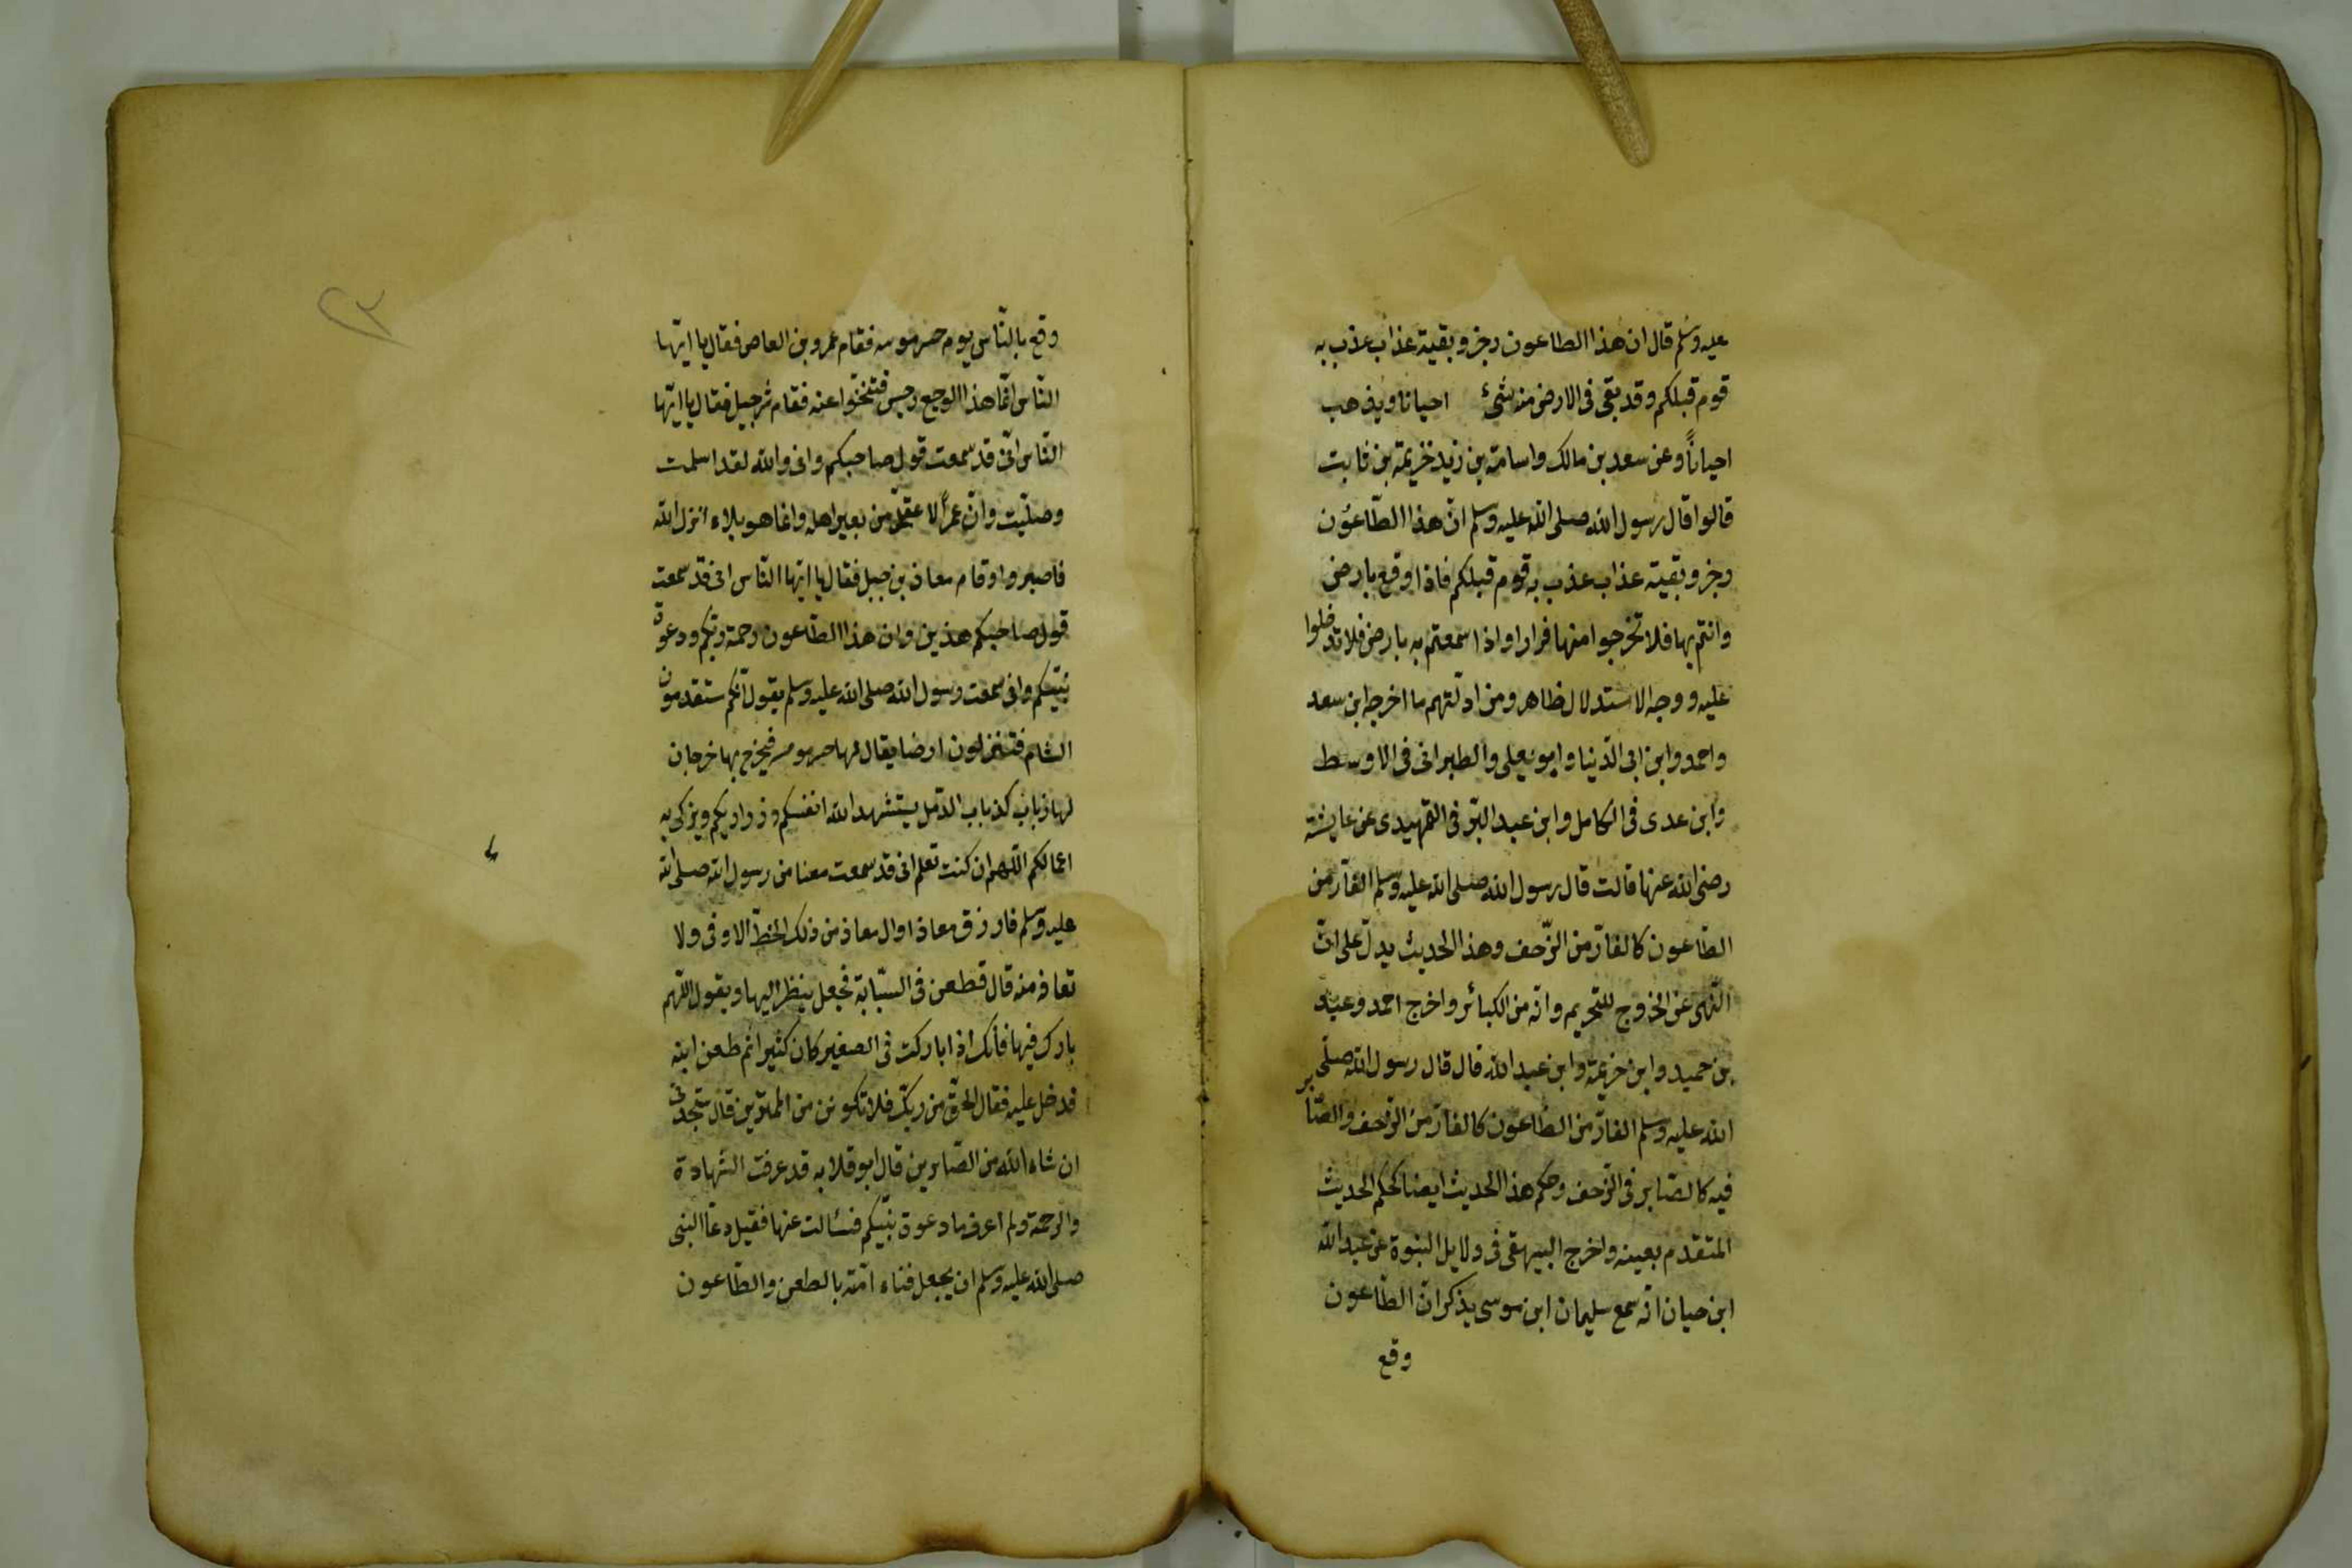 عليه وسلم قال ان هذا الطاعون رجز وبقية عذاب عذب به
قوم قبلكم وقد بقى فى الارض منه شئ احيانا ويذهب
احياناً وعن سعد بن مالك واسامة بن زيد خزيمة بن ثابت
قالوا قال رسول الله صلى الله عليه وسلم انّ هذا الطّاعون
رجز وبقية عذاب عذب به قوم قبلكم فاذا وقع بارض
وانتم بها فلا تخرجوا منها فرارا واذا سمعتم به بارض فلا تدخلوا
عليه ووجه الاستدلال ظاهر ومن ادلّتهم ما اخرجه ابن سعد
واحمد وابن ابى الدّنيا وابو يعلى والطبرانى فى الاوسط
وابن عدى فى الكامل وابن عبد البّر فى التمهيدى عن عايشة
رضى الله عنها قالت قال رسول الله صلى الله عليه وسلم الفارّ من
الطّاعون كالفارّ من الزّحف وهذا الحديث يدلّ على انّ
النّهى عن الخروج للتحريم وانّه من الكبائر واخرج احمد وعبد
بن حميد وابن خزيمة وابن عبد الله قال قال رسول الله صلّى
الله عليه وسلم الفارّ من الطاعون كالفارّ من الزّحف والصّابر
فيه كالصّابر فى الزّحف وحكم هذا الحديث ايضا كحكم الحديث
المتقدم بعينه واخرج البيهقى فى دلايل النبوة عن عبد الله
ابن حيان انّه سمع سليمان ابن موسى يذكر انّ الطّاعون
وقع
وقع بالنّاس يوم جسر موسه فقام عمرو بن العاص فقال يا ايّها
النّاس انّما هذا الوجع رجس فتنحّوا عنه فقام شرجيل فقال يا ايّها
النّاس انّى قد سمعت قول صاحبكم وانى والله لقد اسلمت
وصلّيت وانّ عمرًا لا ضلّ من بعير اهله وانما هو بلاء انزل الله
فاصبروا وقام معاذ بن جبل فقال يا ايّها النّاس انى قد سمعت
قول صاحبكم هذين وان هذا الطّاعون رحمة ربّكم ودعوة
نبيّكم وانى سمعت رسول الله صلى الله عليه وسلم يقول انّكم ستقدمون
الشام فتنزلون ارضا يقال لها جسر موسه فيخرج بها خرجان
لها ذباب كذباب الدّمل يستشهد الله انفسكم وذراريكم ويزكى به
اعمالكم اللّهم ان كنت تعلم انى قد سمعت معنا من رسول الله صلى الله
عليه وسلم فارزق معاذا وال معاذ من ذلك الحظّ الاوفى ولا
تعافه منه قال فطعن فى السّبّابة فجعل ينظر اليها ويقول اللّهم
بارك فيها فأنّك اذا باركت فى الصغير كان كثيرا ثم طعن ابنه
فدخل عليه فقال الحق من ربّك فلا تكونن من الممترين قال ستجدنى
ان شاء الله من الصّابرين قال ابو قلابه قد عرفت الشهادة
والرحمة ولم اعرف ما دعوة نبيّكم فسألت عنها فقيل دعا النبى
صلى الله عليه وسلم ان يجعل فناء امّته بالطعن والطّاعون